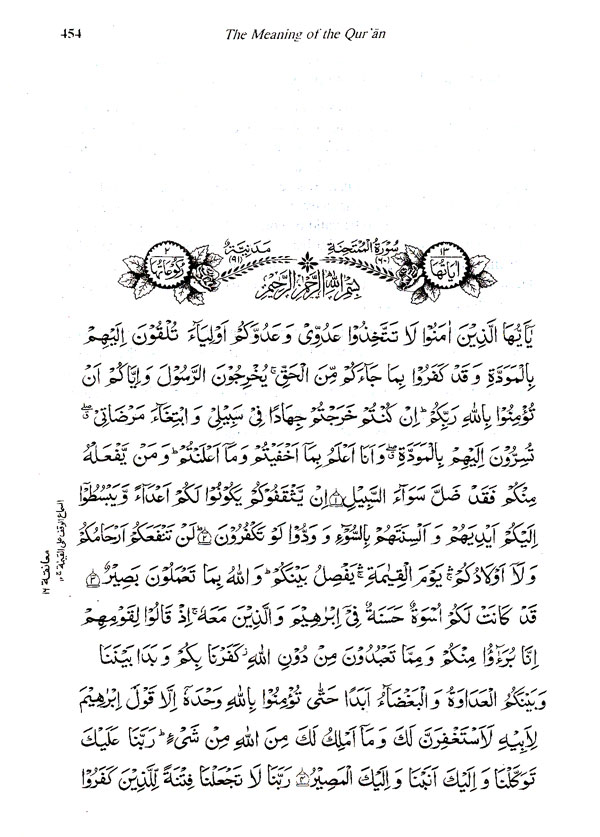 454
The Meaning of the Qur'ān
١٣ اٰيَاتُهَا
سُوْرَةُ الْمُمْتَحِنَةِ (٦٠) مَدَنِيَّةٌ (٩١)
٢ رُكُوْعَاتُهَا
بِسْمِ اللّٰهِ الرَّحْمٰنِ الرَّحِيْمِ
يٰۤاَيُّهَا الَّذِيْنَ اٰمَنُوْا لَا تَتَّخِذُوْا عَدُوِّىْ وَ عَدُوَّكُمْ اَوْلِيَآءَ تُلْقُوْنَ اِلَيْهِمْ
بِالْمَوَدَّةِ وَ قَدْ كَفَرُوْا بِمَا جَآءَكُمْ مِّنَ الْحَقِّ ۚ يُخْرِجُوْنَ الرَّسُوْلَ وَ اِيَّاكُمْ اَنْ
تُؤْمِنُوْا بِاللّٰهِ رَبِّكُمْ ؕ اِنْ كُنْتُمْ خَرَجْتُمْ جِهَادًا فِىْ سَبِيْلِىْ وَ ابْتِغَآءَ مَرْضَاتِىْ ۖق
تُسِرُّوْنَ اِلَيْهِمْ بِالْمَوَدَّةِ ۖق وَ اَنَا اَعْلَمُ بِمَاۤ اَخْفَيْتُمْ وَ مَاۤ اَعْلَنْتُمْ ؕ وَ مَنْ يَّفْعَلْهُ
مِنْكُمْ فَقَدْ ضَلَّ سَوَآءَ السَّبِيْلِ ۝١ اِنْ يَّثْقَفُوْكُمْ يَكُوْنُوْا لَكُمْ اَعْدَآءً وَّ يَبْسُطُوْۤا
اِلَيْكُمْ اَيْدِيَهُمْ وَ اَلْسِنَتَهُمْ بِالسُّوْٓءِ وَ وَدُّوْا لَوْ تَكْفُرُوْنَ ۝٢ؕ لَنْ تَنْفَعَكُمْ اَرْحَامُكُمْ
وَ لَاۤ اَوْلَادُكُمْ ۛۚ يَوْمَ الْقِيٰمَةِ ۛۚ يَفْصِلُ بَيْنَكُمْ ؕ وَ اللّٰهُ بِمَا تَعْمَلُوْنَ بَصِيْرٌ ۝٣
قَدْ كَانَتْ لَكُمْ اُسْوَةٌ حَسَنَةٌ فِىْۤ اِبْرٰهِيْمَ وَ الَّذِيْنَ مَعَهٗ ۚ اِذْ قَالُوْا لِقَوْمِهِمْ
اِنَّا بُرَءٰٓؤُا مِنْكُمْ وَ مِمَّا تَعْبُدُوْنَ مِنْ دُوْنِ اللّٰهِ ؗ كَفَرْنَا بِكُمْ وَ بَدَا بَيْنَنَا
وَ بَيْنَكُمُ الْعَدَاوَةُ وَ الْبَغْضَآءُ اَبَدًا حَتّٰى تُؤْمِنُوْا بِاللّٰهِ وَحْدَهٗۤ اِلَّا قَوْلَ اِبْرٰهِيْمَ
لِاَبِيْهِ لَاَسْتَغْفِرَنَّ لَكَ وَ مَاۤ اَمْلِكُ لَكَ مِنَ اللّٰهِ مِنْ شَىْءٍ ؕ رَبَّنَا عَلَيْكَ
تَوَكَّلْنَا وَ اِلَيْكَ اَنَبْنَا وَ اِلَيْكَ الْمَصِيْرُ ۝٤ رَبَّنَا لَا تَجْعَلْنَا فِتْنَةً لِّلَّذِيْنَ كَفَرُوْا
معانقة